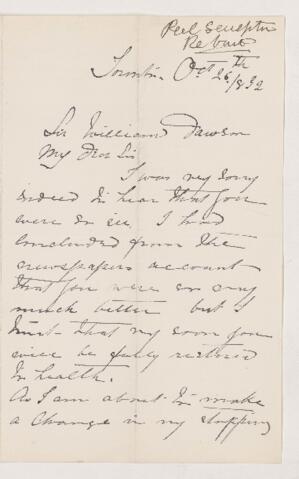 Peel Sculptor
Re bust
Toronto Oct 26th/892
Sir William Dawson
My Dear Sir
I was very sorry
indeed to hear that you
were so ill. I had
concluded from the
newspapers account
that you were so very
much better but I
trust that very soon you
will be fully restored
to health.
As I am about to make
a change in my shipping